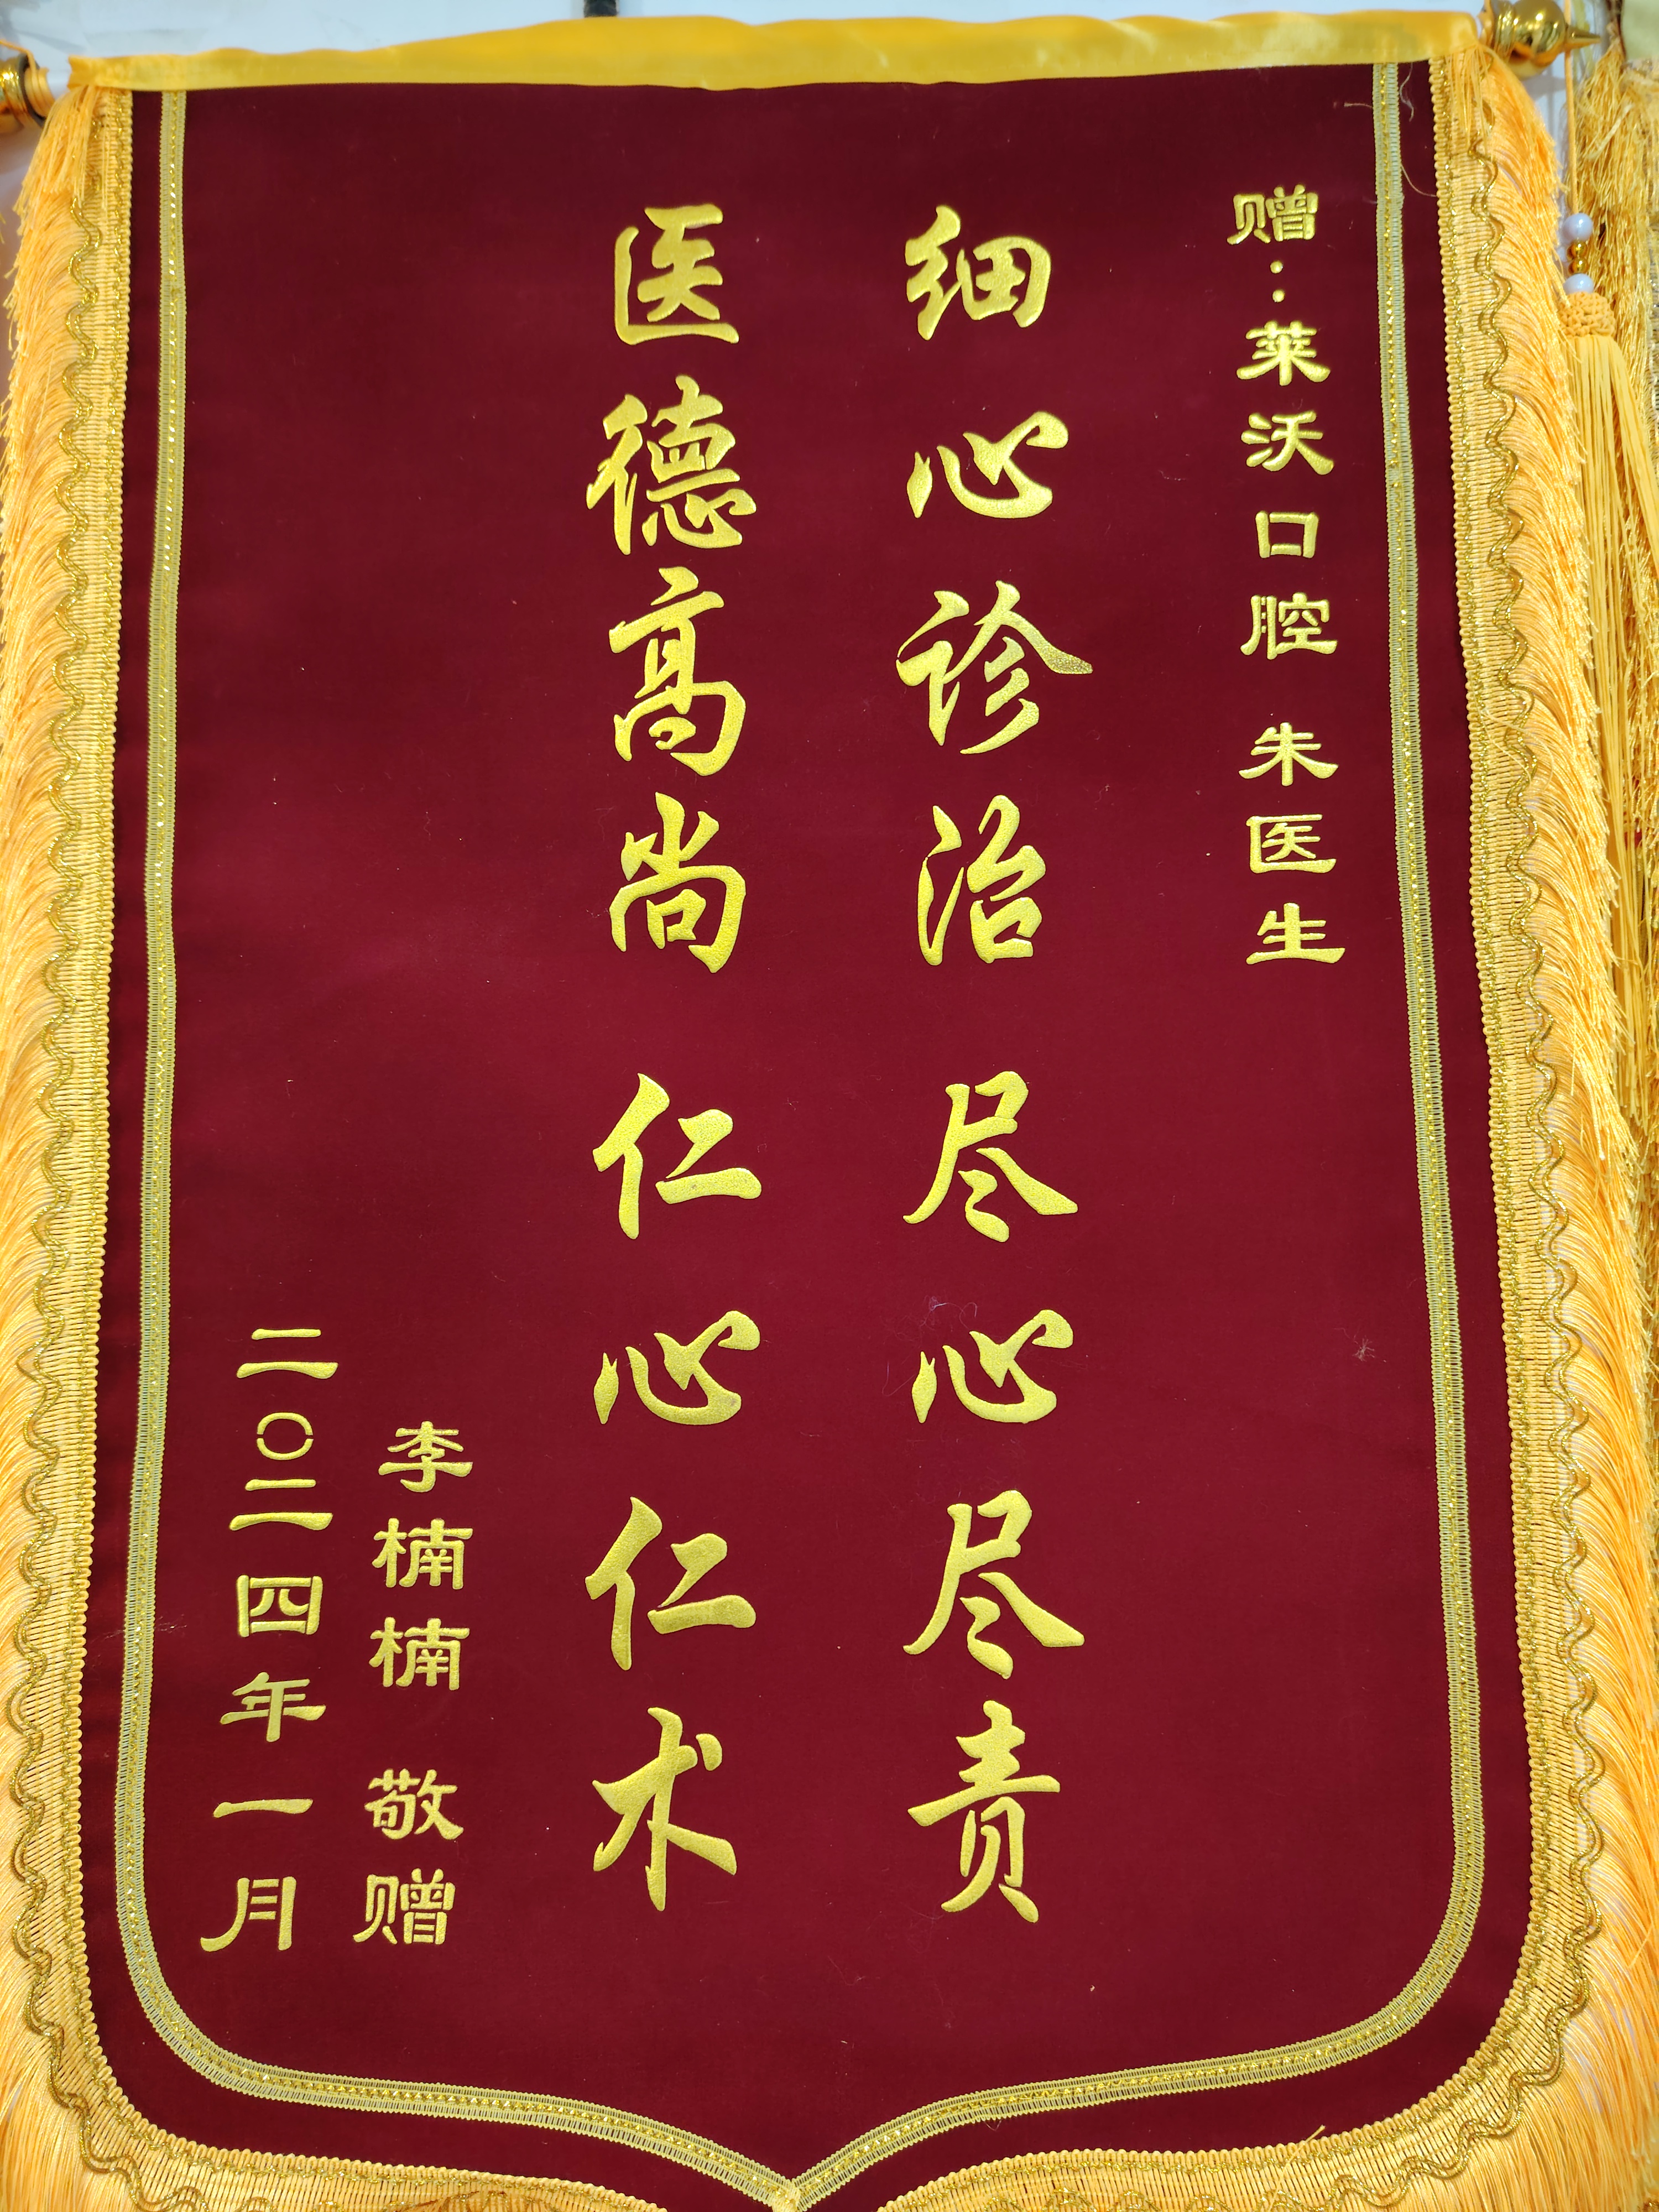 赠：莱沃口腔 朱医生
细心诊治 尽心尽责
医德高尚 仁心仁术
李楠楠 敬赠
二〇二四年一月